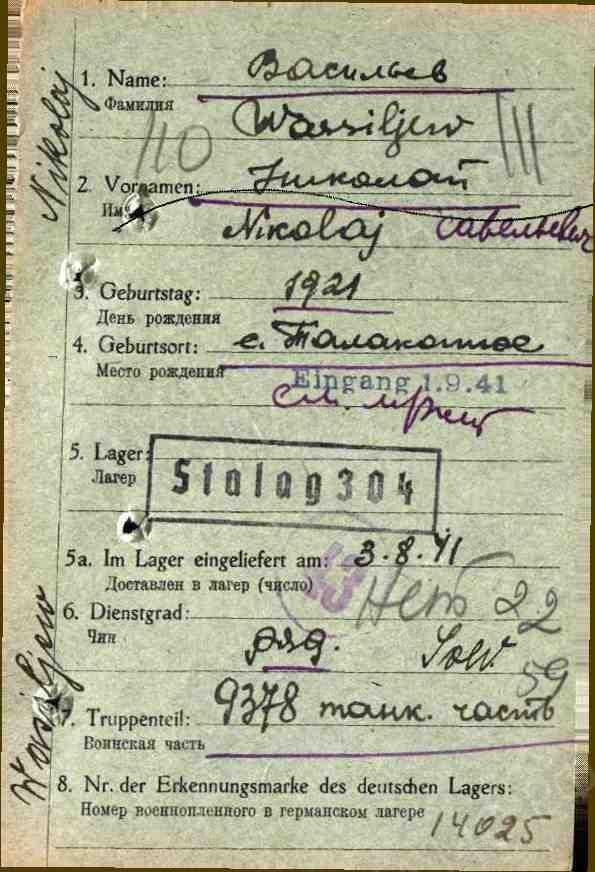 Nikolaj
1. Name: Васильев
Фамилия
Wassiljew
110
III
2. Vornamen: Николай
Имя
Nikolaj Савельевич
3. Geburtstag: 1921
День рождения
4. Geburtsort: с. Талакошное
Место рождения
Eingang 1.9.41
см.
5. Lager: Stalag 304
Лагерь
5a. Im Lager eingeliefert am: 3.8.41
Доставлен в лагерь (число)
6. Dienstgrad:
Чин
Нет 22
ряд. Sold.
59
7. Truppenteil: 9378 танк. часть
Воинская часть
Wassiljew
8. Nr. der Erkennungsmarke des deutschen Lagers:
Номер военнопленного в германском лагере
14025